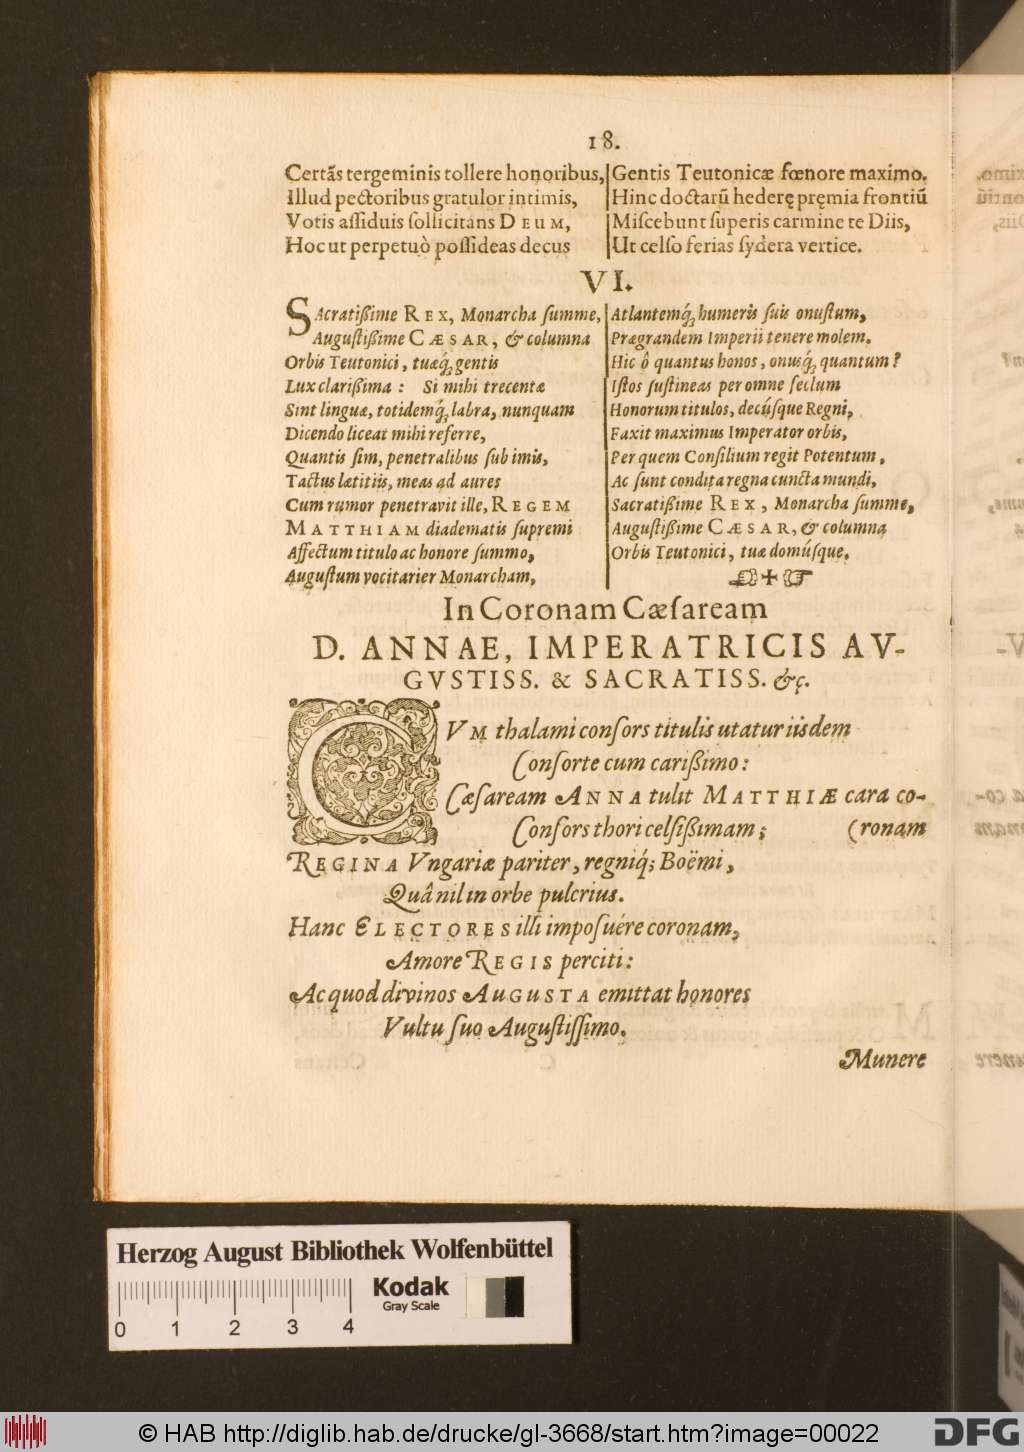 18.
Certãs tergeminis tollere honoribus,
Illud pectoribus gratulor intimis,
Votis aſſiduis ſollicitans DEUM,
Hoc ut perpetuò poſſideas decus
Gentis Teutonicæ fœnore maximo.
Hinc doctarũ hederę pręmia frontiũ
Miſcebunt ſuperis carmine te Diis,
Ut celſo ferias ſydera vertice.
VI.
SAcratißime REX, Monarcha ſumme,
Auguſtißime CÆSAR, & columna
Orbis Teutonici, tuæq́; gentis
Lux clarißima : Si mihi trecentæ
Sint linguæ, totidemq́; labra, nunquam
Dicendo liceat mihi referre,
Quantis ſim, penetralibus ſub imis,
Tactus lætitiis, meas ad aures
Cum rumor penetravit ille, REGEM
MATTHIAM diadematis ſupremi
Affectum titulo ac honore ſummo,
Auguſtum vocitarier Monarcham,
Atlantemq́; humeris ſuis onuſtum,
Prægrandem Imperii tenere molem.
Hic ô quantus honos, onusq́; quantum?
Iſtos ſuſtineas per omne ſeclum
Honorum titulos, decúſque Regni,
Faxit maximus Imperator orbis,
Per quem Conſilium regit Potentum,
Ac ſunt condita regna cuncta mundi,
Sacratißime REX, Monarcha ſumme,
Auguſtißime CÆSAR, & columna
Orbis Teutonici, tuæ domúſque.
☜✠☞
In Coronam Cæſaream
D. ANNAE, IMPERATRICIS AV-
GVSTISS. & SACRATISS. &ç.
CVM thalami conſors titulis utatur iisdem
Conſorte cum carißimo:
Cæſaream ANNA tulit MATTHIÆ cara co-
Conſors thori celſißimam; (ronam
REGINA Vngariæ pariter, regniq́; Boëmi,
Quâ nil in orbe pulcrius.
Hanc ELECTORES illi impoſuére coronam,
Amore REGIS perciti:
Ac quod divinos AUGUSTA emittat honores
Vultu ſuo Auguſtiſſimo.
Munere
Herzog August Bibliothek Wolfenbüttel
Kodak
Gray Scale
0 1 2 3 4
© HAB http://diglib.hab.de/drucke/gl-3668/start.htm?image=00022
DFG